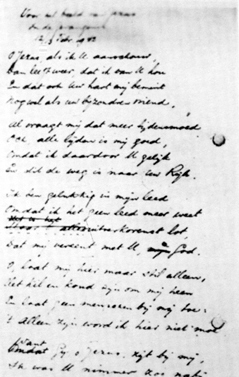 Voor het beeld van Jezus
in de gevangenis
12 Febr 1942
O Jezus als ik U aanschouw,
Dan leeft weer, dat ik van U hou
En dat ook Uw hart mij bemint
Nog wel als Uw bijzondre vriend.
Al vraagt mij dat meer lijdensmoed
Och, alle lijden is mij goed,
Omdat ik daardoor U gelijk
En dit de weg is naar Uw Rijk.
Ik ben gelukkig in mijn leed
Omdat ik het geen leed meer weet
Maar 't alleruitverkorenst lot,
Dat mij vereent met U, mijn God.
O, laat mij hier maar stil alleen,
Het kil en koud zijn om mij heen
En laat geen menschen bij mij toe:
't alleen zijn word ik hier niet moe
Want Gij, o Jezus, zijt bij mij,
Ik was U nimmer zoo nabij